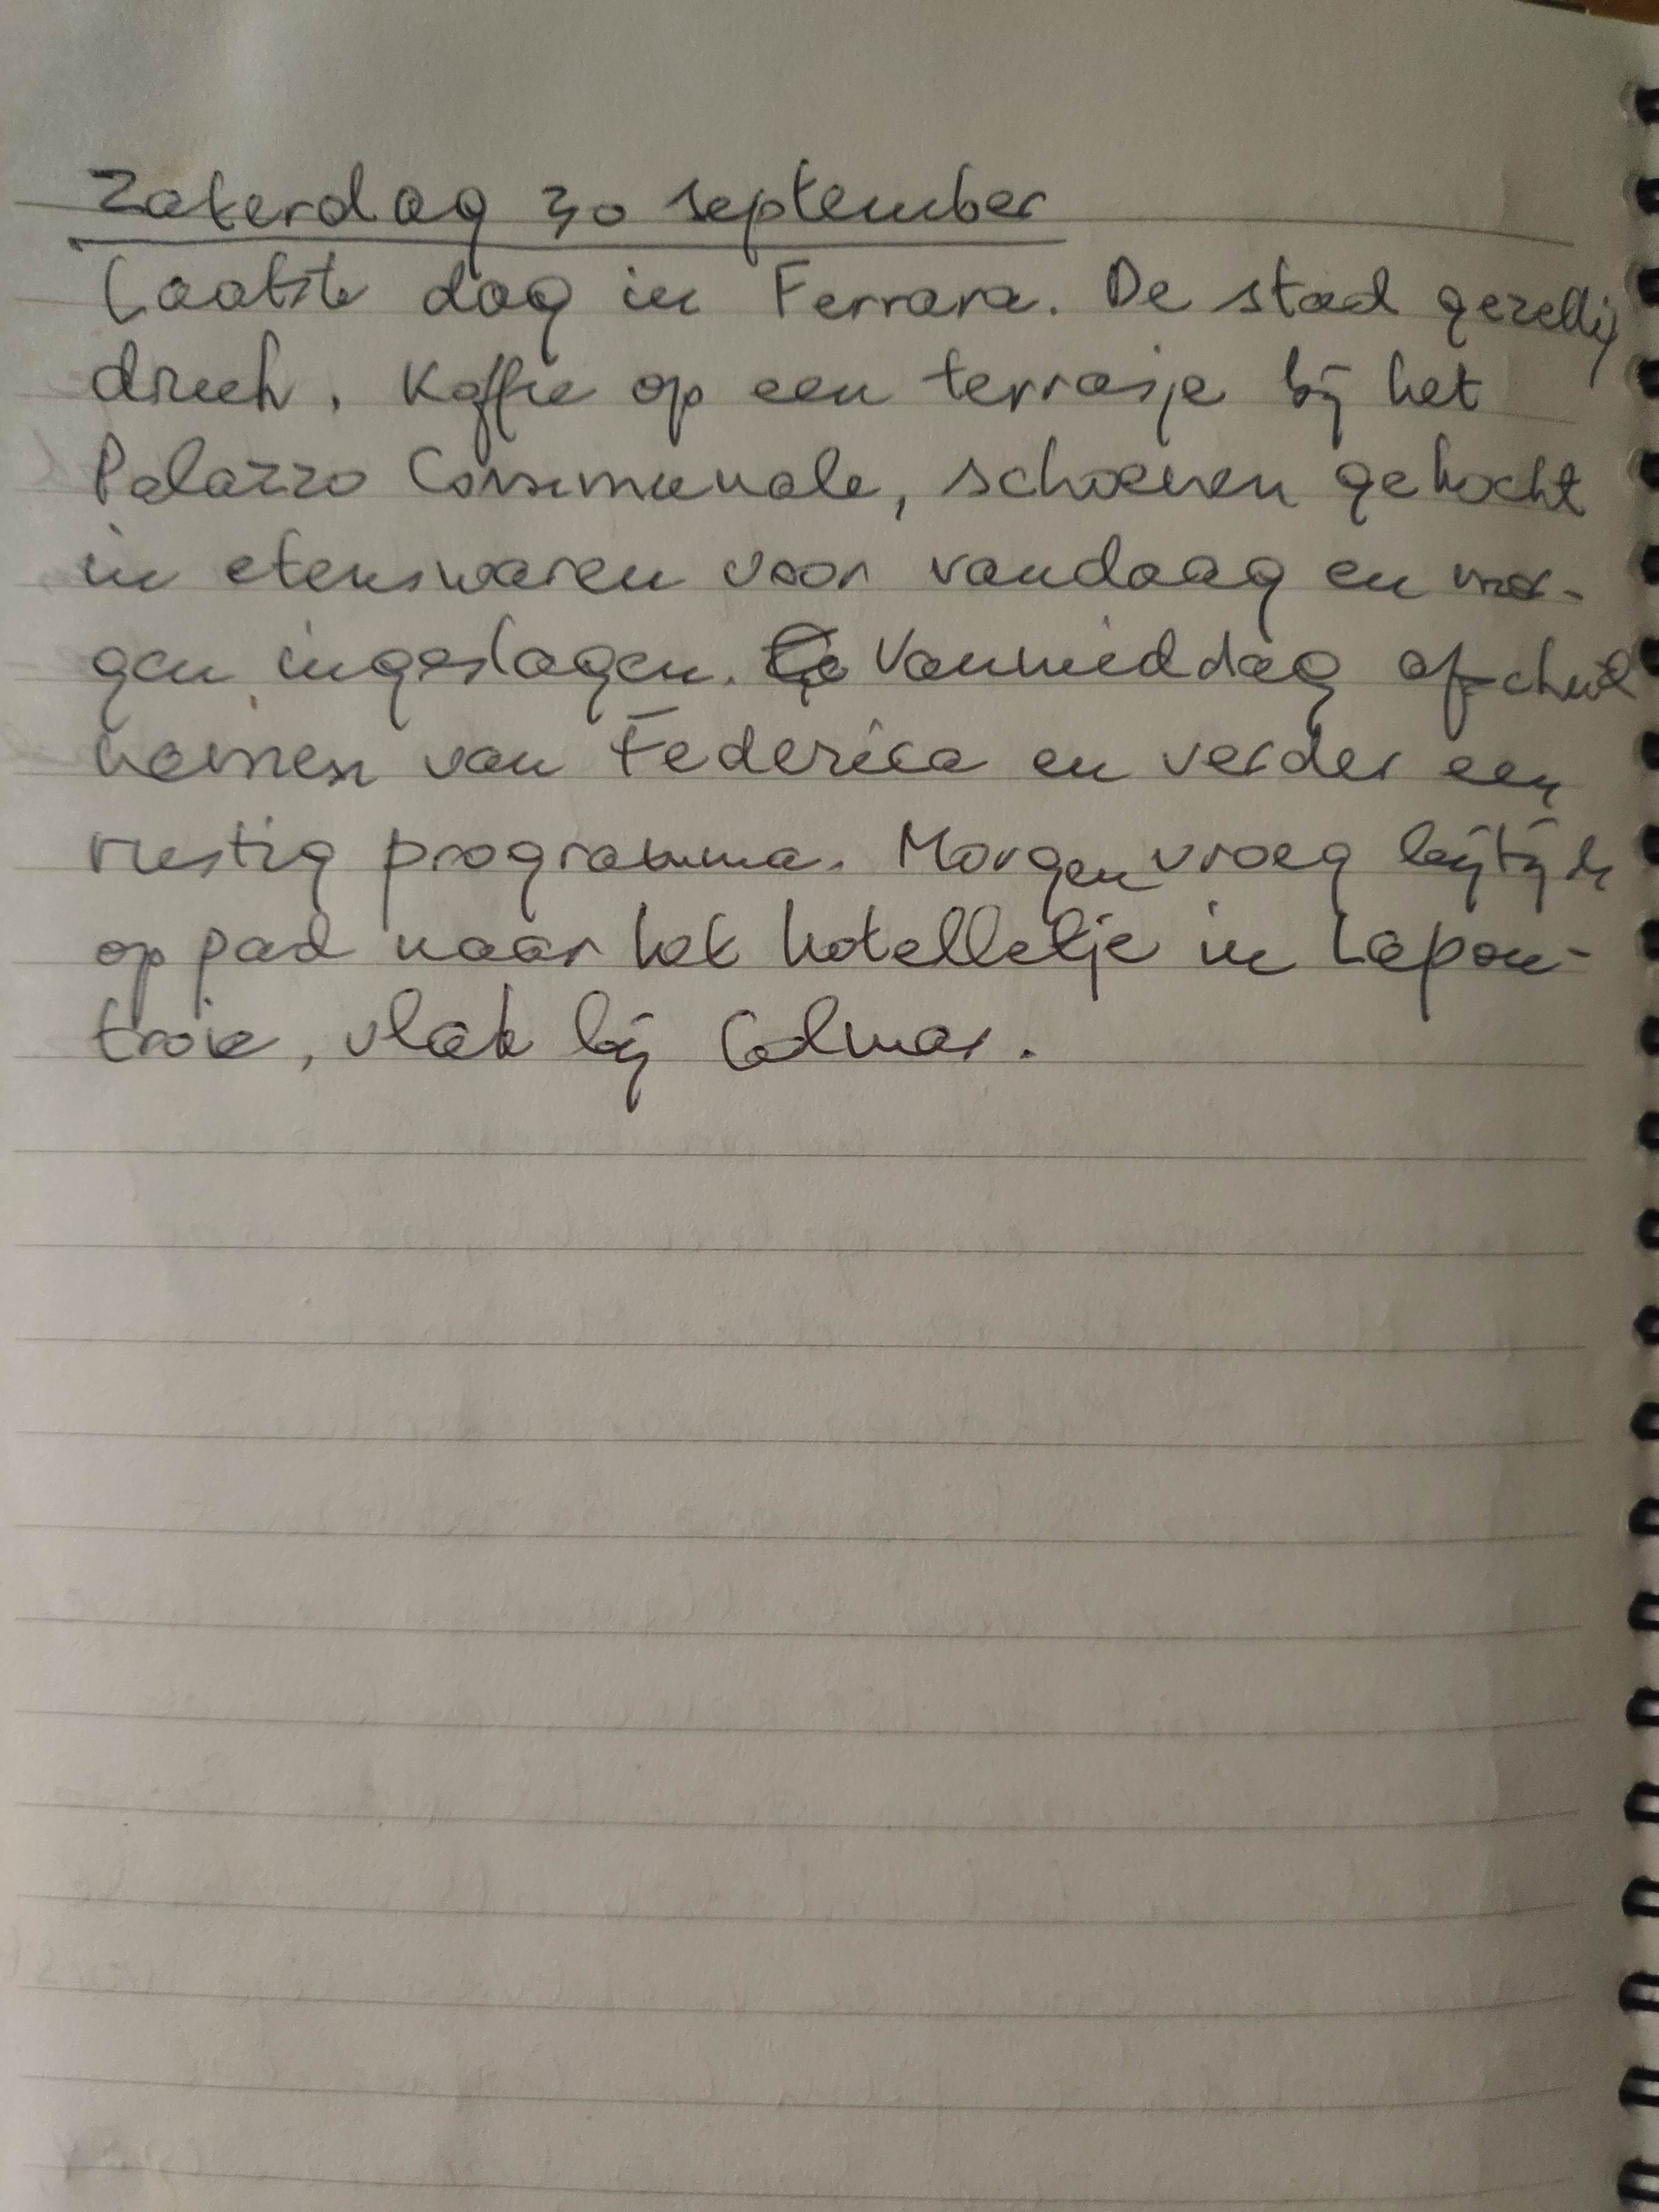 Zaterdag 30 september
Laatste dag in Ferrara. De stad gezellig
druk. Koffie op een terrasje bij het
Palazzo Communale, schoenen gekocht
in etenswaren voor vandaag en mor-
gen ingeslagen. Vanmiddag afscheid
nemen van Federica en verder een
rustig programma. Morgen vroeg bijtijds
op pad naar het hotelletje in Lapou-
troie, vlak bij Colmar.